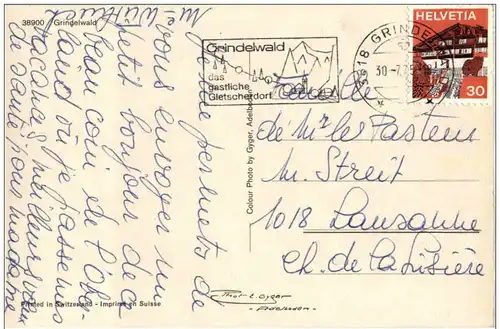 38900 Grindelwald
Grindelwald
das
gastliche
Gletscherdorf
3818 GRINDELWALD
30-7.75
HELVETIA
30
Je me permets de
vous envoyer un
petit bonjour de ce
beau coin de l'Ober-
land où je passe
vacances, meilleurs vœux
de santé
Madame
Famille
de Mr le Pasteur
M. Streit
1018 Lausanne
Ch. de la Lisière
Colour Photo by Gyger, Adelboden
Printed in Switzerland - Imprimé en Suisse
Gyger
Adelboden